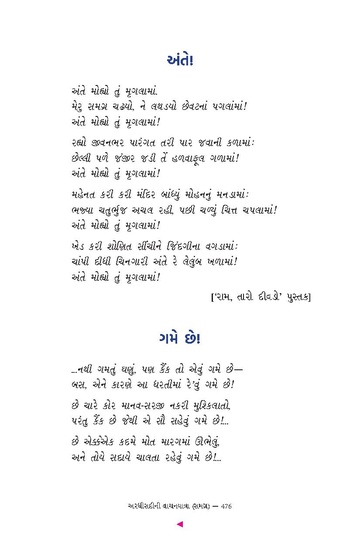 અંતે!
અંતે મોહ્યો તું મૃગલામાં.
મેરુ સમગ્ર ચઢ્યો, ને લથડ્યો છેવટનાં પગલાંમાં!
અંતે મોહ્યો તું મૃગલામાં!
રહ્યો જીવનભર પારંગત તરી પાર જવાની કળામાં:
છેલ્લી પળે જંજીર જડી તેં હળવાફૂલ ગળામાં!
અંતે મોહ્યો તું મૃગલામાં!
મહેનત કરી કરી મંદિર બાંધ્યું મોહનનું મનડામાં:
ભજ્યા ચતુર્ભુજ અચલ રહી, પછી ચળ્યું ચિત્ત ચપલામાં!
અંતે મોહ્યો તું મૃગલામાં!
ખેડ કરી શોણિત સીંચીને જિંદગીના વગડામાં:
ચાંપી દીધી ચિનગારી અંતે રે લેલુંબ ખળામાં!
અંતે મોહ્યો તું મૃગલામાં!
['રામ, તારો દીવડો' પુસ્તક]
ગમે છે!
...નથી ગમતું ઘણું, પણ કૈંક તો એવું ગમે છે—
બસ, એને કારણે આ ધરતીમાં રે'વું ગમે છે!
છે ચારે કોર માનવ-સરજી નકરી મુશ્કિલાતો,
પરંતુ કૈંક છે જેથી એ સૌ સહેવું ગમે છે!...
છે એક્કેએક કદમે મોત મારગમાં ઊભેલું,
અને તોયે સદાયે ચાલતા રહેવું ગમે છે!...
અરધી સદીની વાચનયાત્રા (સમગ્ર) — 476